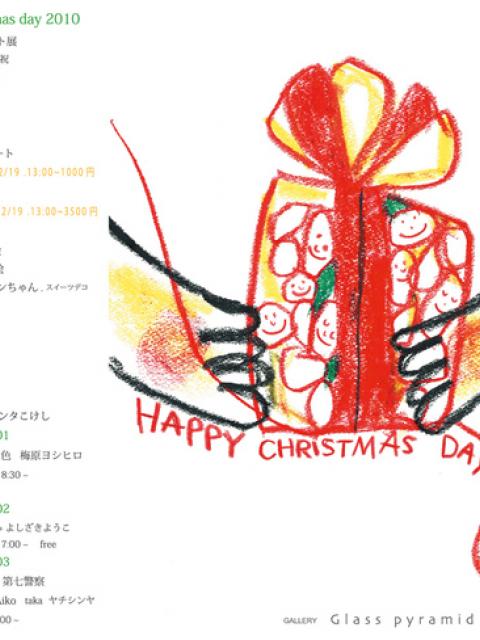 mas day 2010
ト展
祝
ート
2/19 .13:00~1000円
2/19 .13:00~3500円
絵
ンちゃん . スイーツデコ
HAPPY CHRISTMAS DAY
ンタこけし
01
色 梅原ヨシヒロ
8:30 –
02
よしざきようこ
7:00 – free
03
第七警察
Aiko taka ヤチシンヤ
:00 –
GALLERY Glass pyramid